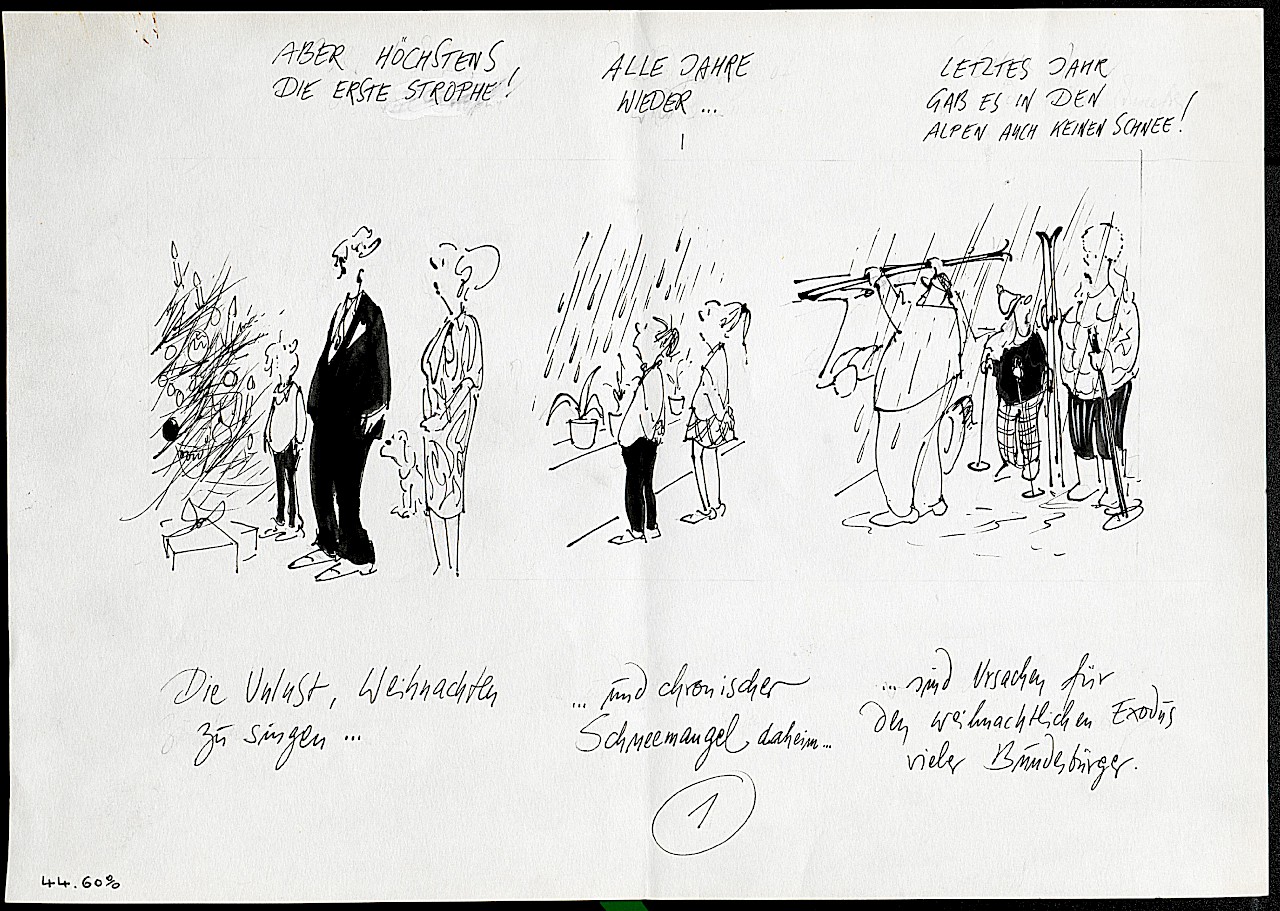 ABER HÖCHSTENS
DIE ERSTE STROPHE!
ALLE JAHRE
WIEDER...
LETZTES JAHR
GAB ES IN DEN
ALPEN AUCH KEINEN SCHNEE!
Die Unlust, Weihnachten
zu singen ...
... und chronischer
Schneemangel daheim...
... sind Ursachen für
den weihnachtlichen Exodus
vieler Bundesbürger.
1
44.60%